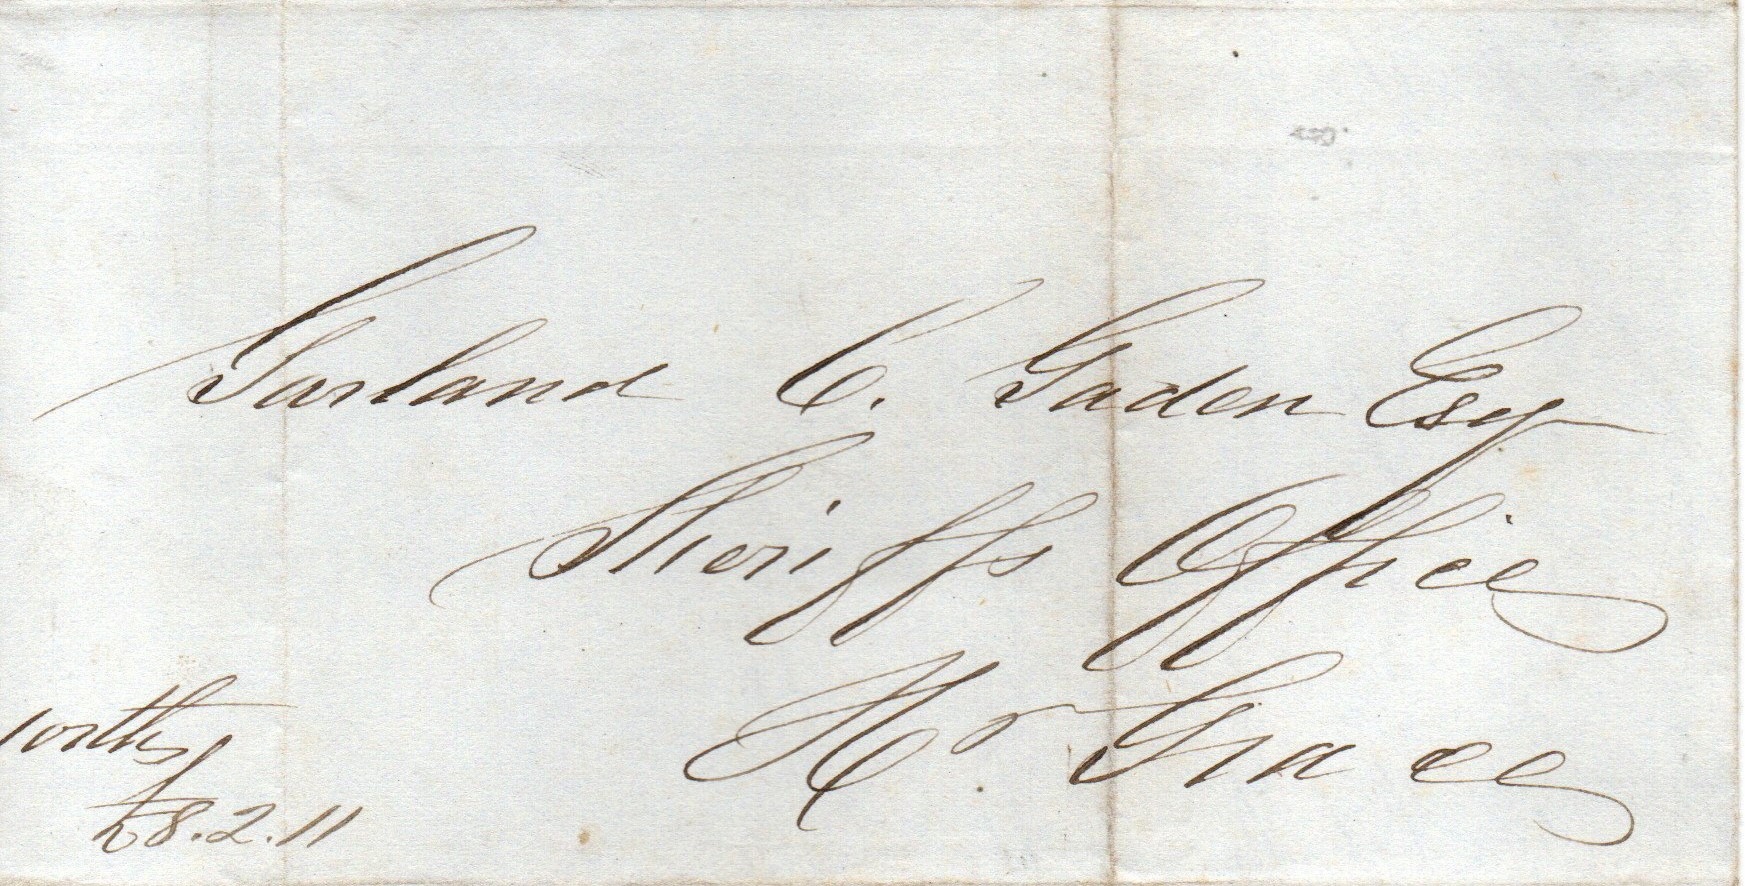 Garland C. Gaden Esq
Sheriffs Office
Hr. Grace
worth
£8.2.11